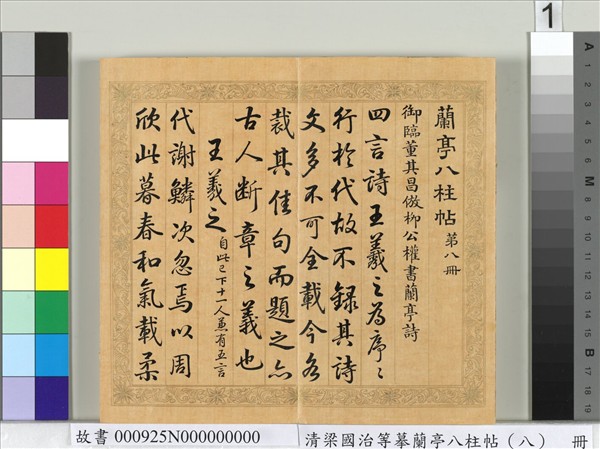 蘭亭八柱帖 第八冊
御臨董其昌倣柳公權書蘭亭詩
四言詩王羲之為序序
行於代故不錄其詩
文多不可全載今各
裁其佳句而題之亦
古人斷章之義也
王羲之 自此已下十一人兼有五言
代謝鱗次忽焉以周
欣此暮春和氣載柔
1
A
1
2
3
4
5
6
M
8
9
10
11
12
13
14
15
B
17
18
19
故書 000925N000000000
清梁國治等摹蘭亭八柱帖（八） 冊